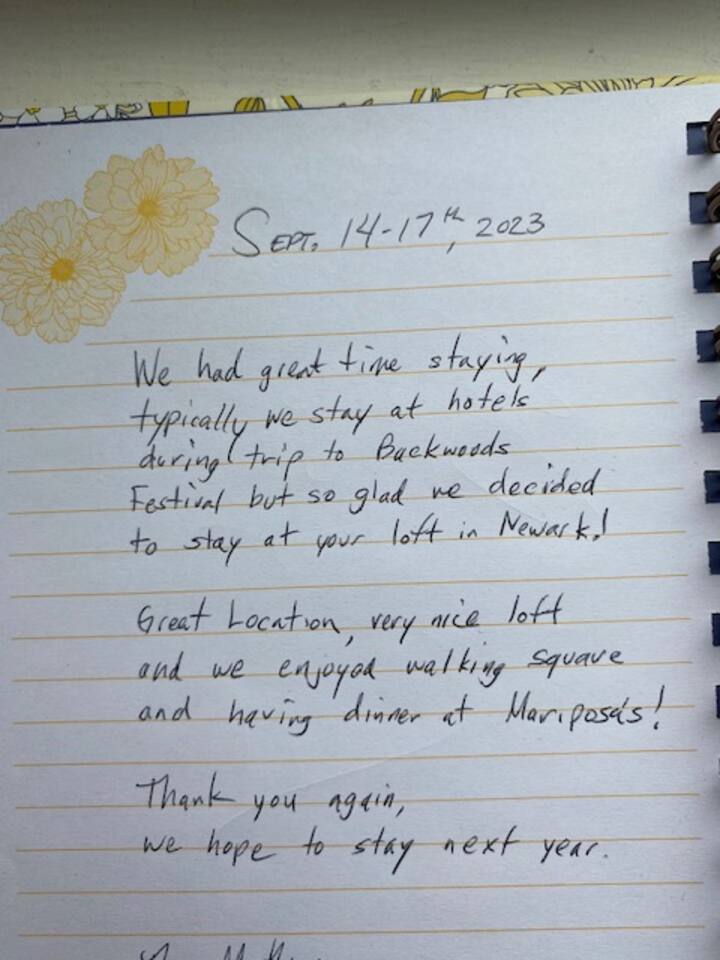 Sept. 14-17th, 2023
We had great time staying,
typically we stay at hotels
during trip to Backwoods
Festival but so glad we decided
to stay at your loft in Newark!
Great Location, very nice loft
and we enjoyed walking square
and having dinner at Mariposa's!
Thank you again,
we hope to stay next year.